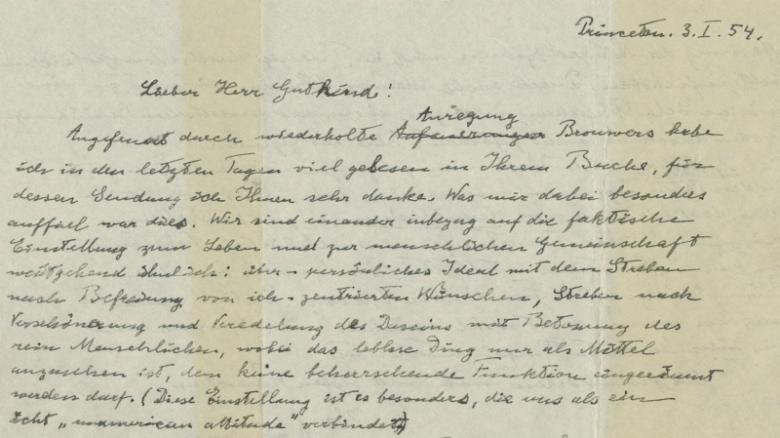 Princeton. 3. I. 54.
Lieber Herr Gutkind!
Anregung
Angefeuert durch wiederholte Aufmunterungen Brouwers habe
ich in den letzten Tagen viel gelesen in Ihrem Buche, für
dessen Sendung ich Ihnen sehr danke. Was mir dabei besonders
auffiel war dies. Wir sind einander inbezug auf die faktische
Einstellung zum Leben und zur menschlichen Gemeinschaft
weitgehend ähnlich: über-persönliches Ideal mit dem Streben
nach Befreiung von ich-zentrierten Wünschen, Streben nach
Verschönerung und Veredelung des Daseins mit Betonung des
rein Menschlichen, wobei das leblose Ding nur als Mittel
anzusehen ist, dem keine beherrschende Funktion eingeräumt
werden darf. (Diese Einstellung ist es besonders, die uns als ein
ächt „unamerican attitude" verbindet)